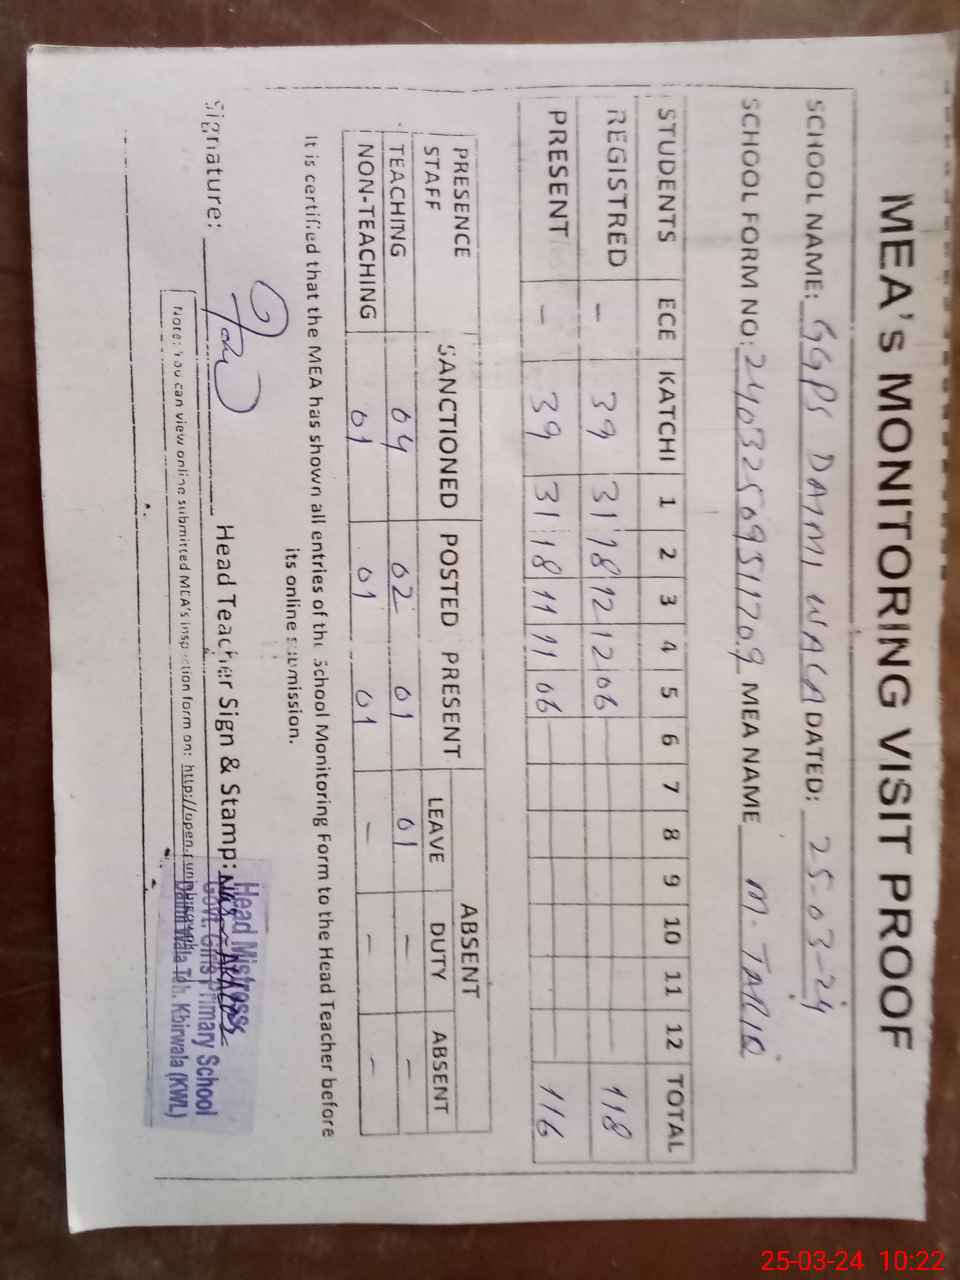 MEA'S MONITORING VISIT PROOF
SCHOOL NAME: GGPS DAIMI WALA DATED: 25-03-24
SCHOOL FORM NO: MEA NAME M. TARIQ
STUDENTS ECE KATCHI 1 2 3 4 5 6 7 8 9 10 11 12 TOTAL
REGISTRED - 39 31 18 12 12 06 118
PRESENT - 39 31 18 11 11 06 116
PRESENCE STAFF SANCTIONED POSTED PRESENT ABSENT
LEAVE DUTY ABSENT
TEACHING 04 02 01 01 - -
NON-TEACHING 01 01 01 - - -
It is certified that the MEA has shown all entries of the School Monitoring Form to the Head Teacher before
its online submission.
Signature: Head Teacher Sign & Stamp:
Head Mistress
Govt. Girls Primary School
Daimi Wala Teh. Kbirwala (KWL)
Note: You can view online submitted MEA's inspection form on:
25-03-24 10:22